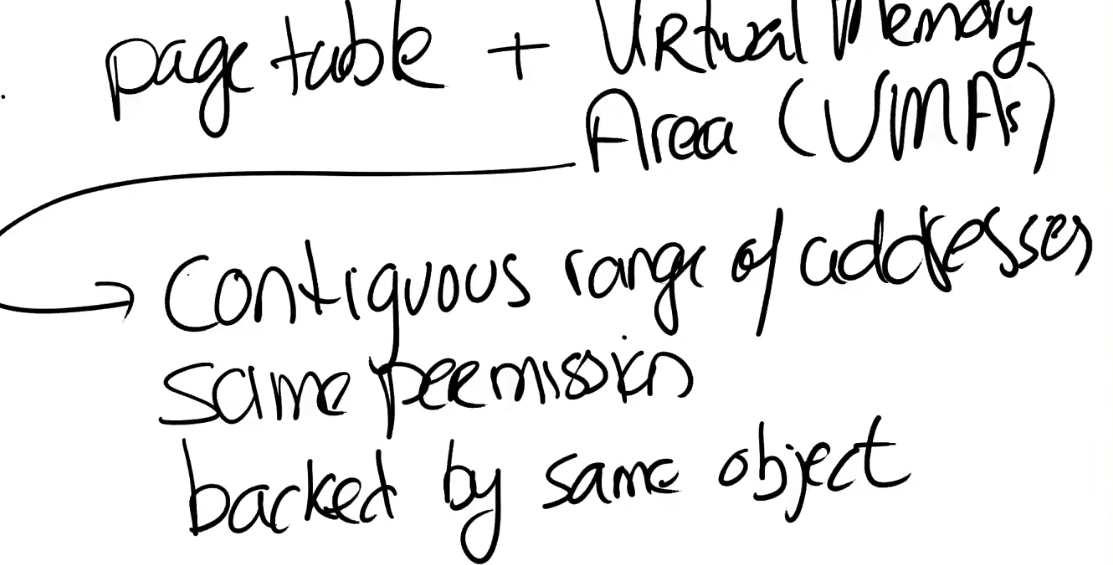 page table + Virtual Memory
Area (VMAs)
Contiguous range of addresses
same permission
backed by same object